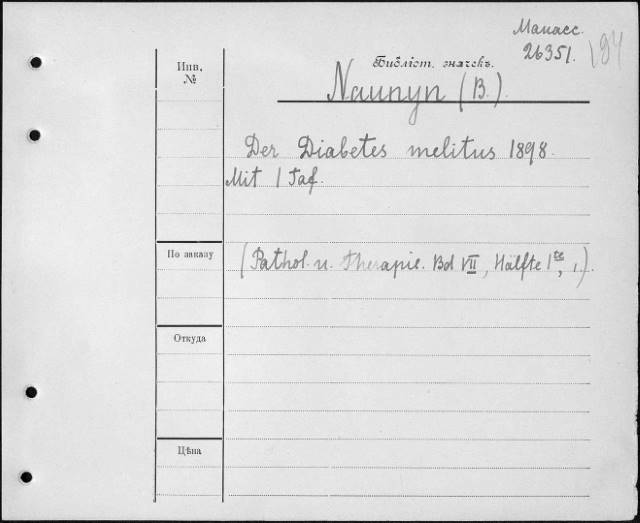 Манасс.
26351. 194
Инв.
№
Библіот. значекъ.
Naunyn (B.).
Der Diabetes melitus 1898.
Mit 1 Taf.
По заказу
(Pathol. u. Therapie. Bd VII, Hälfte 1te, 1.)
Откуда
Цѣна